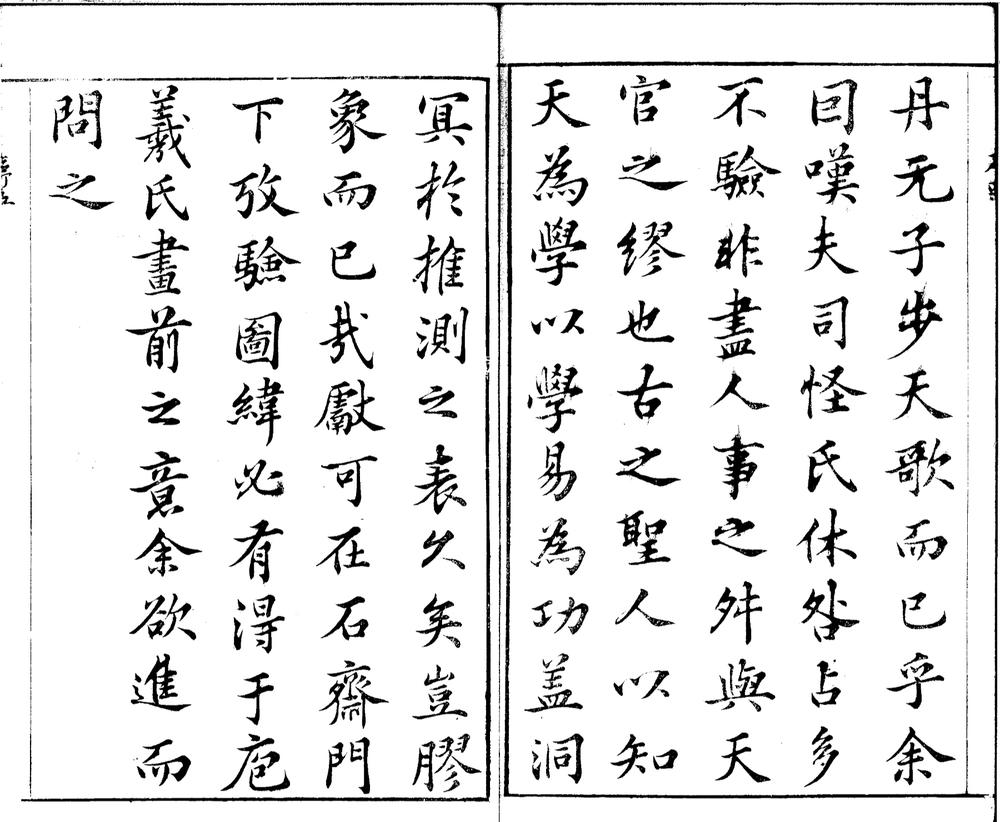 丹元子步天歌而已乎余
囙嘆夫司怪氏休咎占多
不驗非盡人事之舛與天
官之繆也古之聖人以知
天為學以學易為功盖洞
冥於推測之表久矣豈膠
象而已哉獻可在石齋門
下攷驗圖緯必有得于庖
羲氏畫前之意余欲進而
問之